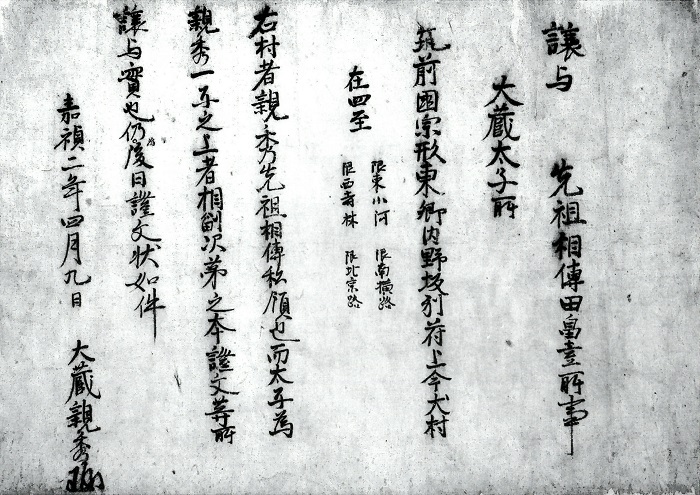 讓与　先祖相傳田畠壹所事
大藏太子所
筑前國宗形東郷内野坂別符上今犬村
在四至
限東小河　限南横路
限西寺林　限北宗路
右村者親秀先祖相傳私領也而太子為
親秀一子之上者相副次第之本證文等所
讓与實也仍為後日證文状如件
嘉禎二年四月九日　大藏親秀